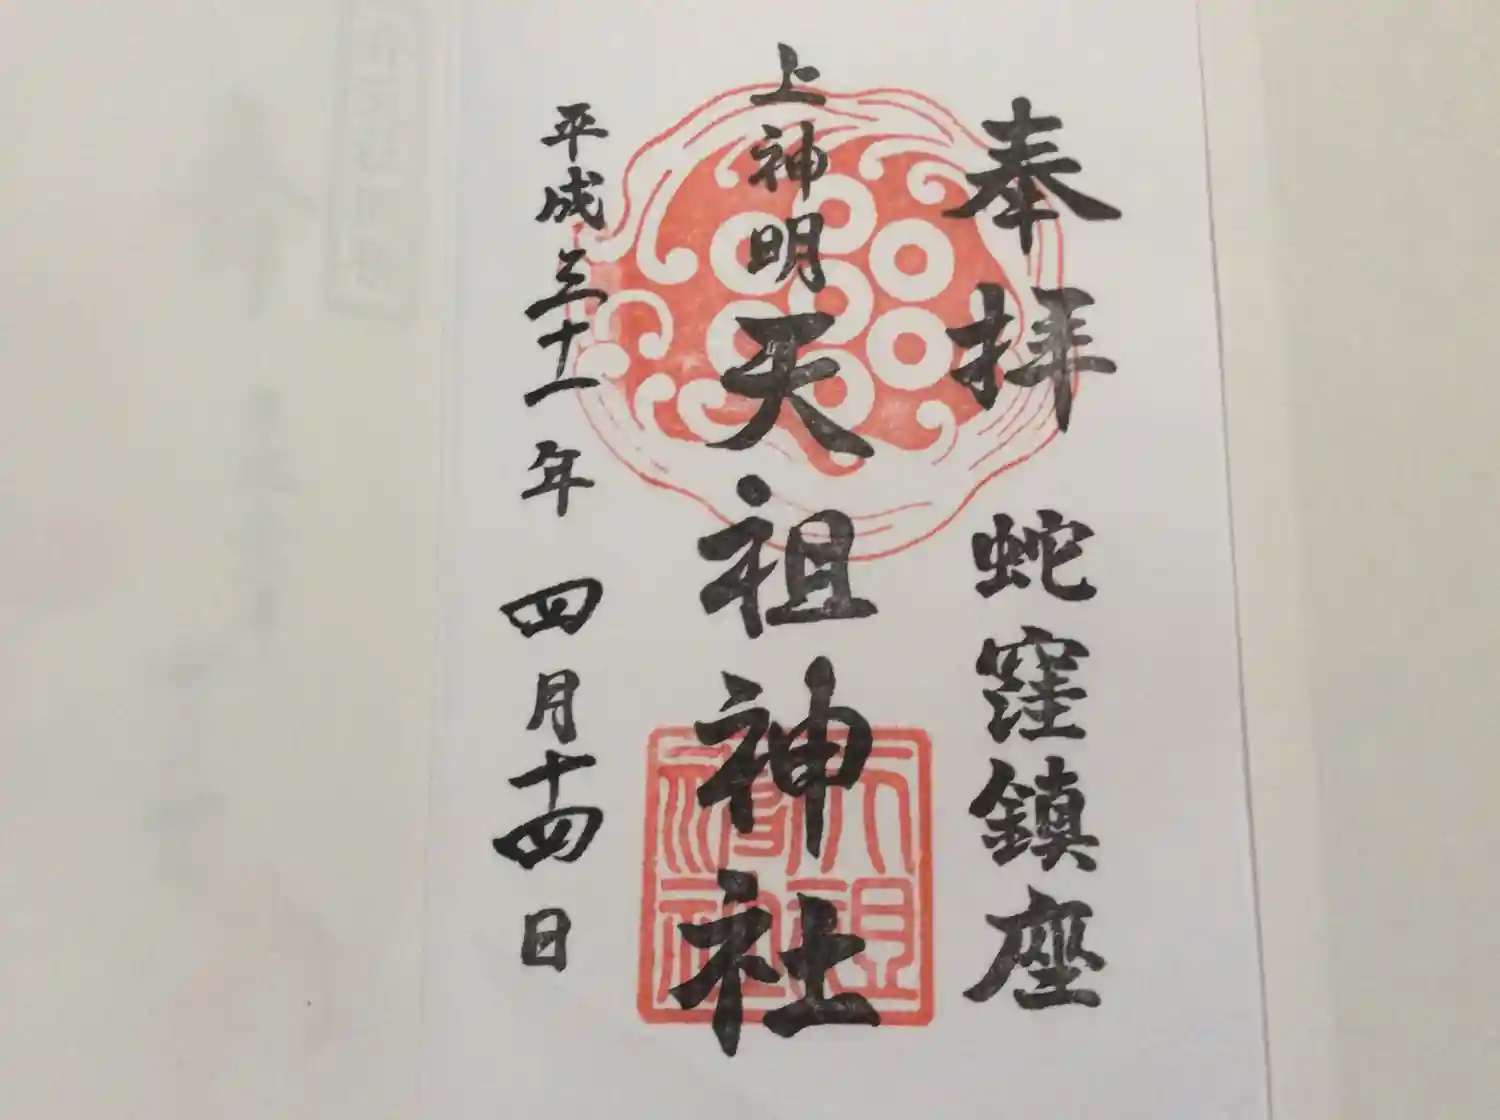 奉拝 蛇窪鎮座
上神明天祖神社
平成三十一年四月十四日